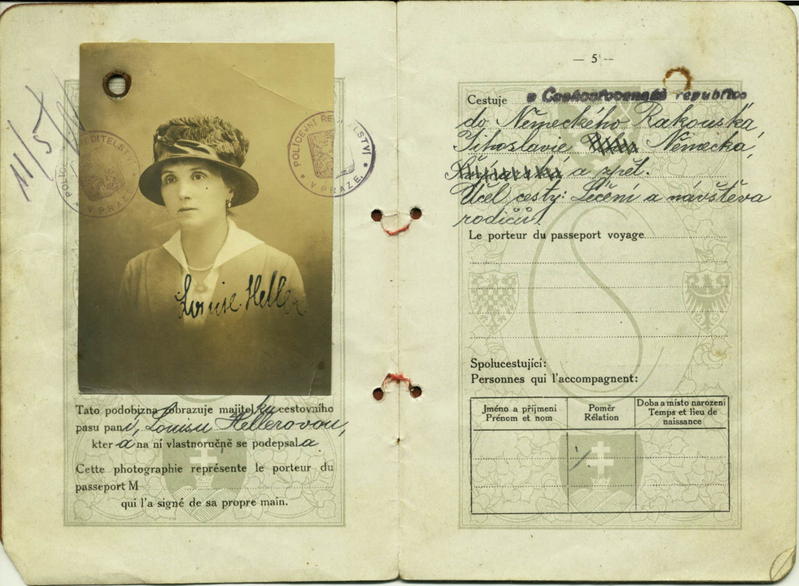 11/5
POLICEJNÍ ŘEDITELSTVÍ
V PRAZE
POLICEJNÍ ŘEDITELSTVÍ
V PRAZE.
Louise Heller
Tato podobizna zobrazuje majitelku cestovního
pasu paní, Louisu Hellerovou,
která na ní vlastnoručně se podepsala
Cette photographie représente le porteur du
passeport M
qui l'a signé de sa propre main.
— 5 —
Cestuje z Československé republiky
do Německého Rakouska
Jihoslavie Německa,
a zpět.
Účel cesty: Léčení a návštěva
rodičů.
Le porteur du passeport voyage
Spolucestující:
Personnes qui l'accompagnent:
Jméno a příjmení Poměr Doba a místo narození
Prénom et nom Rélation Temps et lieu de
naissance